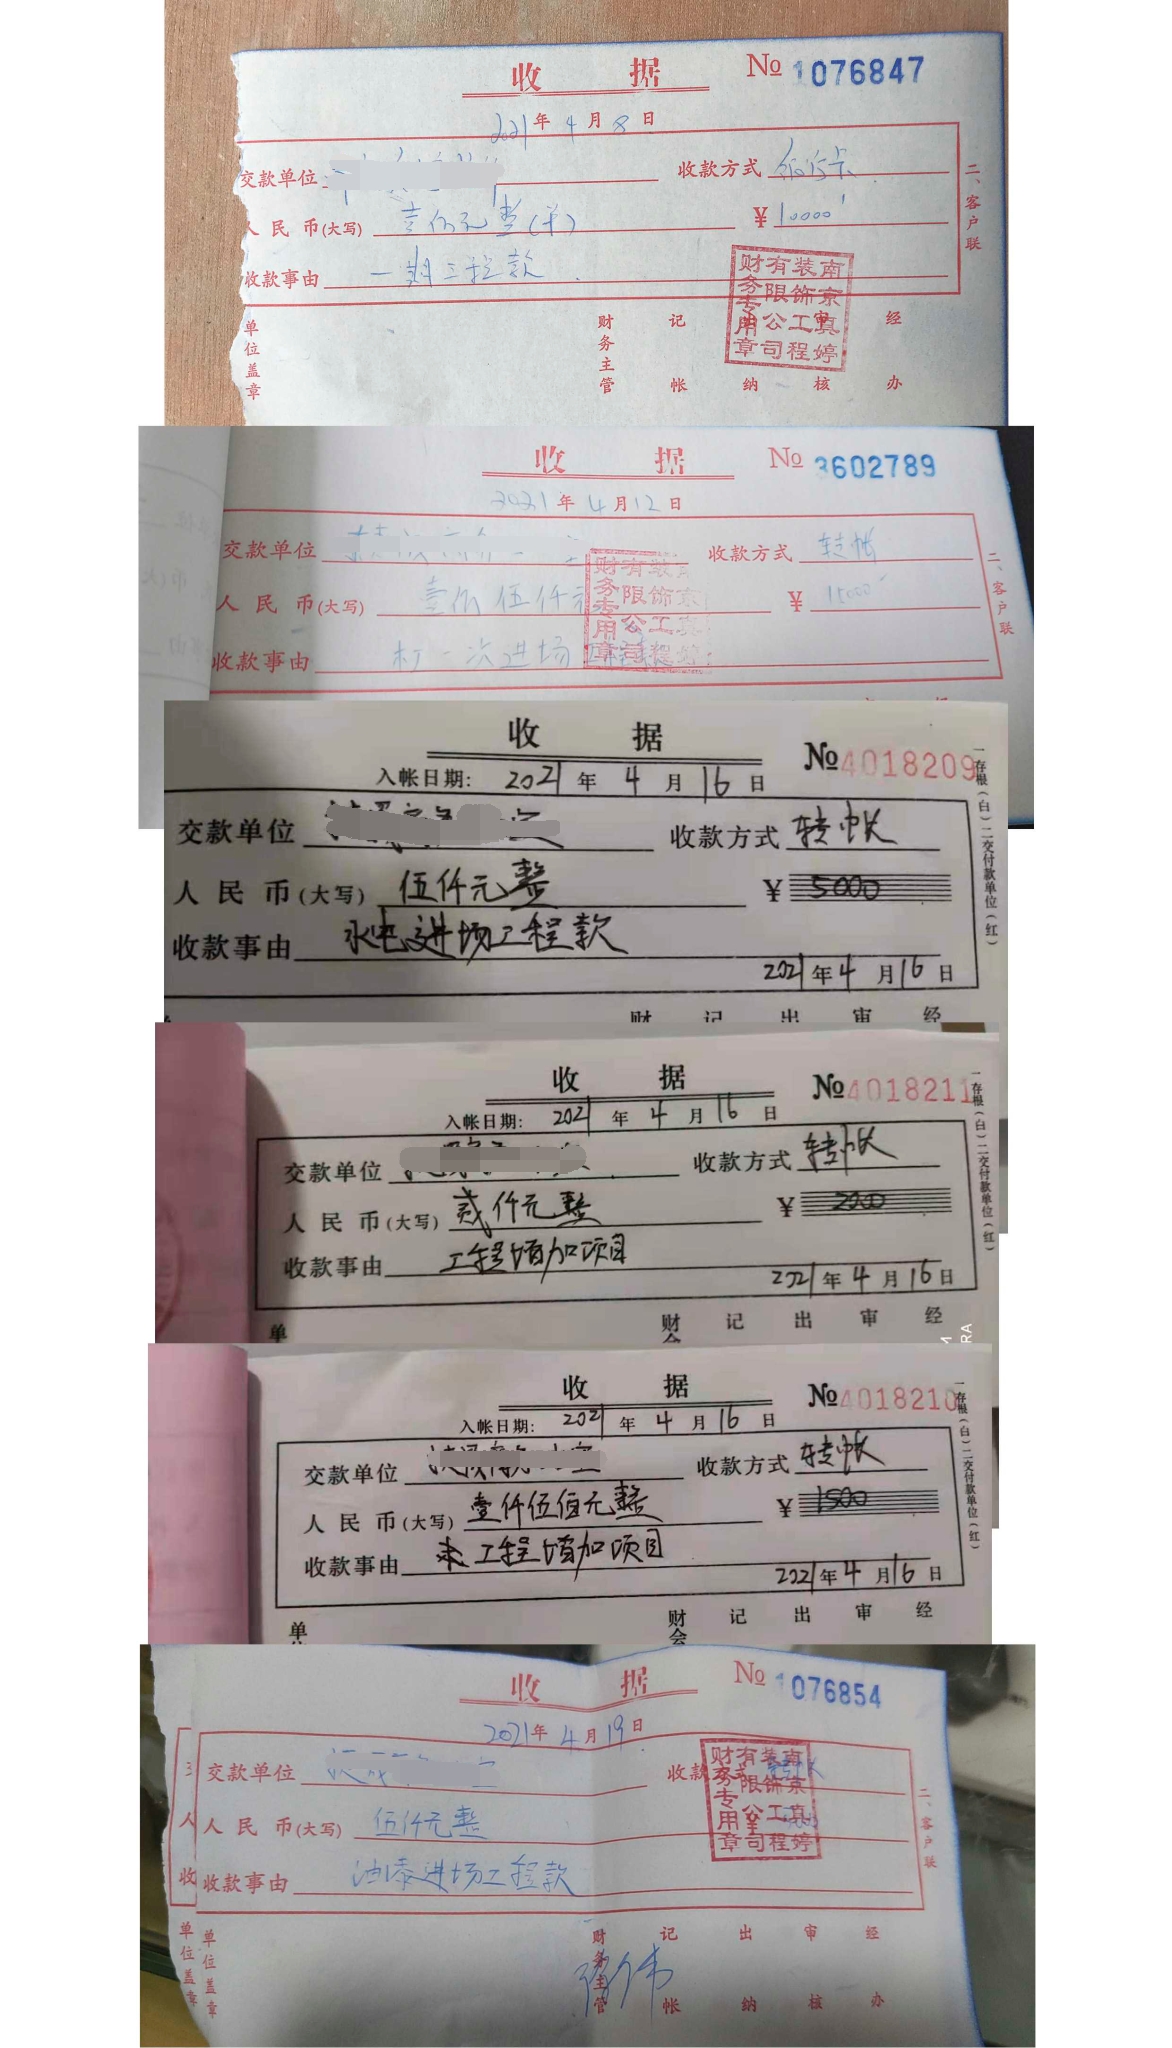 收 据 № 1076847
2021年4月8日
交款单位 收款方式 银行卡
人民币(大写) 壹仟元整(半) ¥ 10000
收款事由 一期工程款
二、客户联
南京真婷装饰工程有限公司财务专用章
单位盖章 财务主管 记帐 出纳 审核 经办
收 据 № 3602789
2021年4月12日
交款单位 收款方式 转帐
人民币(大写) 壹 伍仟元 ¥ 15000
收款事由 木工一次进场
二、客户联
财务专用章
收 据 № 4018209
入帐日期: 2021年4月16日
交款单位 收款方式 转帐
人民币(大写) 伍仟元整 ¥ 5000
收款事由 水电进场工程款
2021年4月16日
一存根(白)二交付款单位(红)
财 记 出 审 经
收 据 № 4018211
入帐日期: 2021年4月16日
交款单位 收款方式 转帐
人民币(大写) 贰仟元整 ¥ 2000
收款事由 工程增加项目
2021年4月16日
一存根(白)二交付款单位(红)
单 财会 记 出 审 经
收 据 № 4018210
入帐日期: 2021年4月16日
交款单位 收款方式 转帐
人民币(大写) 壹仟伍佰元整 ¥ 1500
收款事由 工程增加项目
2021年4月16日
一存根(白)二交付款单位(红)
单 财会 记 出 审 经
收 据 № 1076854
2021年4月19日
交款单位 收款方式 转帐
人民币(大写) 伍仟元整 ¥
收款事由 油漆进场工程款
二、客户联
南京真婷装饰工程有限公司财务专用章
单位盖章 财务主管 记帐 出纳 审核 经办